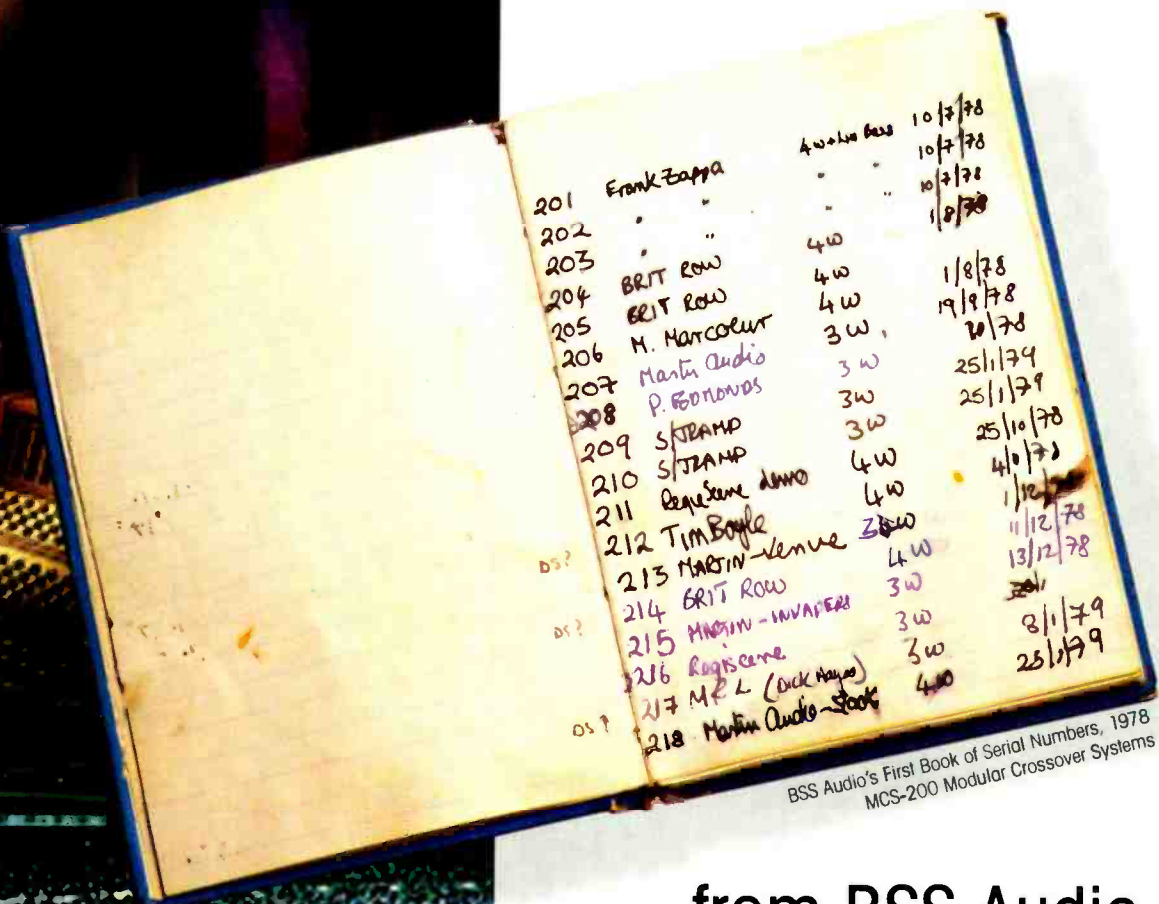 201 Frank Zappa 4w+ 10/7/78
202 " " " " 10/7/78
203 " " " " 10/7/78
204 BRIT ROW 4w 1/8/78
205 BRIT ROW 4w 1/8/78
206 M. Marcoeur 4w 19/9/78
207 Martin Audio 3w /78
208 P. EDMONDS 3w 25/1/79
209 S/TRAMP 3w 25/1/79
210 S/TRAMP 3w 25/10/78
211 demo 4w
212 Tim Boyle 4w 1/12/
DS? 213 MARTIN-Venue 3w 11/12/78
214 BRIT ROW 4w 13/12/78
DS? 215 MARTIN-INVADERS 3w
216 Regiscene 3w 8/1/79
217 M L (Dick Hayes) 3w 25/1/79
DS? 218 Martin Audio-Stock 4w
BSS Audio's First Book of Serial Numbers, 1978
MCS-200 Modular Crossover Systems
from BSS Audio